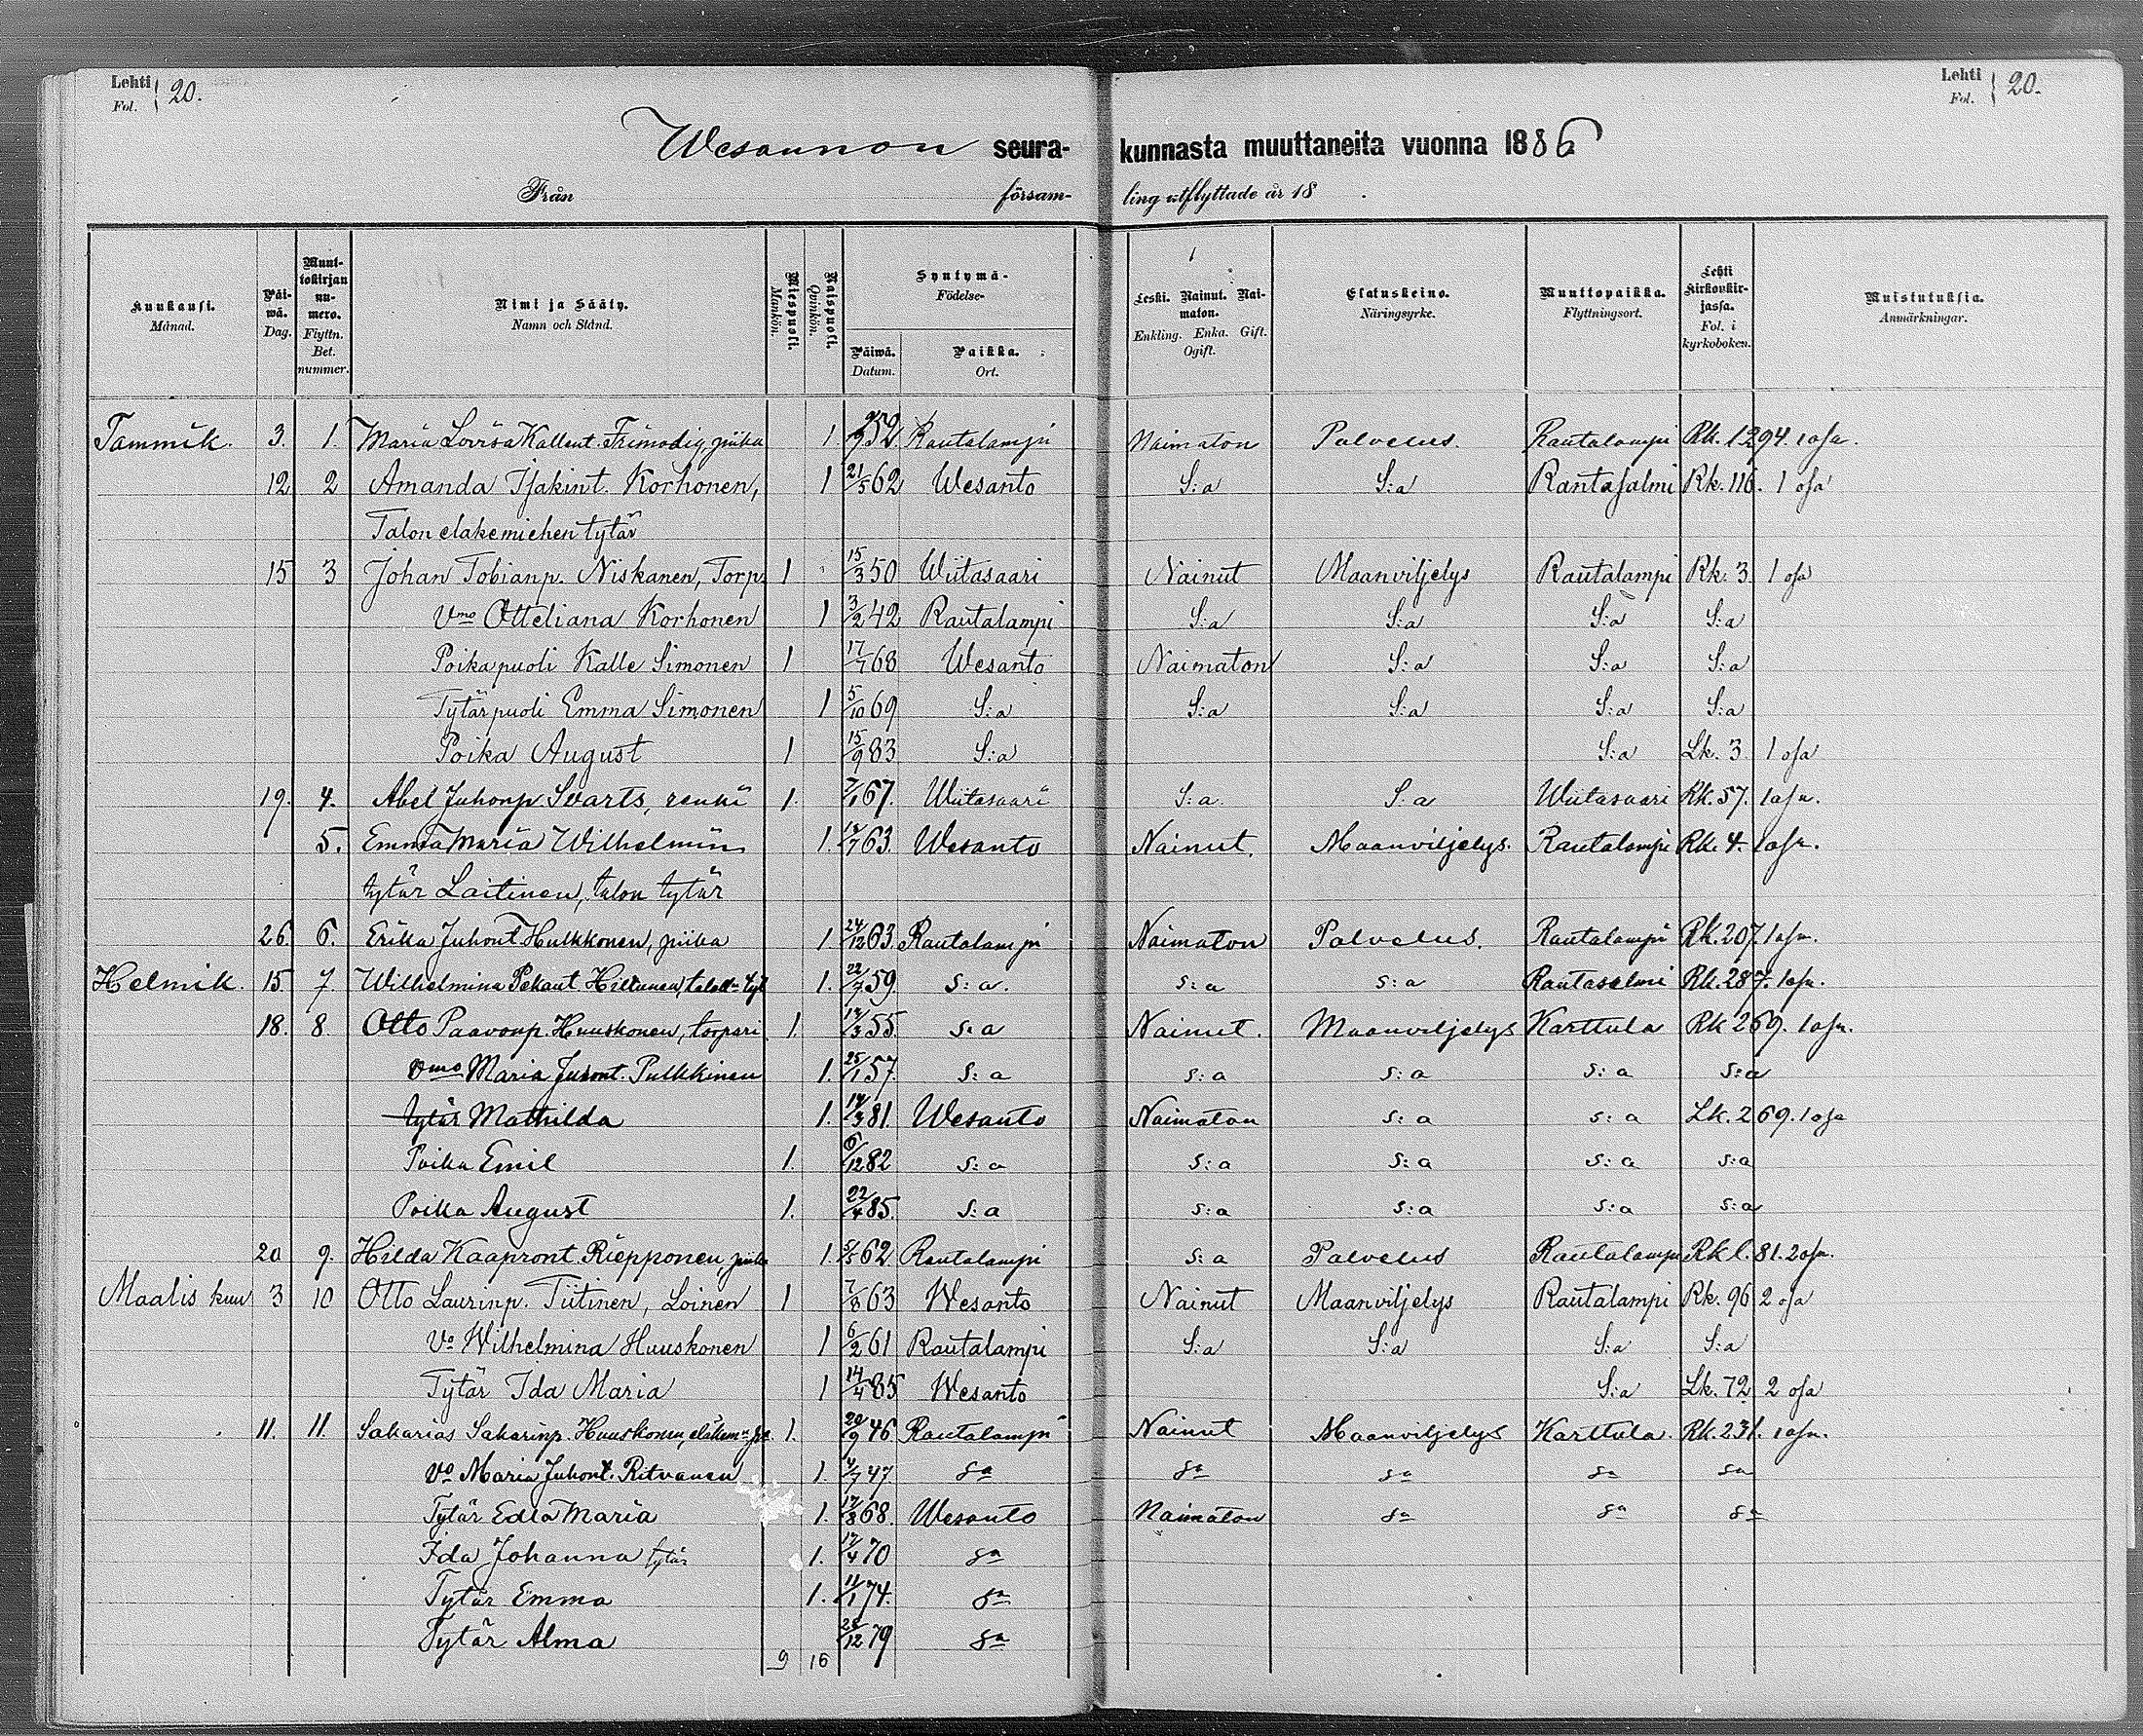 Lehti Fol. 20.
Lehti Fol. 20.
Wesannon seura- kunnasta muuttaneita vuonna 1886
Från försam- ling utflyttade år 18 .
Kuukausi. Månad.
Päiwä. Dag.
Muuttokirjan numero. Flyttn. Bet. nummer.
Nimi ja Sääty. Namn och Stånd.
Miespuoli. Mankön.
Naispuoli. Quinkön.
Syntymä- Födelse-
Päiwä. Datum.
Paikka. Ort.
Leski. Nainut. Naimaton. Enkling. Enka. Gift. Ogift.
Elatuskeino. Näringsyrke.
Muuttopaikka. Flyttningsort.
Lehti Kirkonkirjassa. Fol. i kyrkoboken.
Muistutuksia. Anmärkningar.
Tammik. 3. 1. Maria Lovisa Kallent. Frimodig, piika 1. 52. Rautalampi Naimaton Palvelus. Rautalampi Rk. 1294. 1 osa.
12 2 Amanda Isakint. Korhonen, 1 21/5 62 Wesanto S:a S:a Rantasalmi Rk. 116. 1 osa
Talon elakemiehen tytär
15 3 Johan Tobianp. Niskanen, Torp. 1 15/3 50 Wiitasaari Nainut Maanviljelys Rautalampi Rk. 3 1 osa
Vmo Otteliana Korhonen 1 3/2 42 Rautalampi S:a S:a S:a S:a
Poikapuoli Kalle Simonen 1 17/7 68 Wesanto Naimaton S:a S:a S:a
Tytärpuoli Emma Simonen 1 5/10 69 S:a S:a S:a S:a S:a
Poika August 1 15/9 83 S:a S:a Lk. 3 1 osa
19. 4. Abel Juhonp. Svarts, renki 1. 7/1 67. Wiitasaari S:a S:a Wiitasaari Rk. 57. 1 osa.
5. Emma Maria Wilhelmin 1. 63. Wesanto Nainut. Maanviljelys. Rautalampi Rk. 4. 1 osa.
tytär Laitinen, talon tytär
26. 6. Erika Juhont. Hulkkonen, piika 1. 24/12 63. Rautalampi Naimaton Palvelus. Rautalampi Rk. 207. 1 osa.
Helmik. 15. 7. Wilhelmina Pekant. Hiltunen, talon tyt 1. 22/7 59. S:a. s:a s:a Rantasalmi Rk. 287. 1 osa.
18. 8. Otto Paavonp. Huuskonen, torpari. 1. 55. s:a Nainut. Maanviljelys Karttula Rk 269. 1 osa.
vmo Maria Juhont. Pulkkinen 1. 25/1 57. S:a s:a s:a s:a s:a
tytär Mathilda 1. 14/3 81. Wesanto Naimaton s:a s:a Lk. 269. 1 osa
Poika Emil 1. 6/12 82 s:a s:a s:a s:a s:a
Poika August 1. 22/4 85. s:a s:a s:a s:a s:a
20 9. Hilda Kaapront. Riepponen, piika 1. 5/5 62 Rautalampi s:a Palvelus Rautalampi Rk l. 81. 2 osa.
Maalis kuu 3 10 Otto Laurinp. Tiitinen, Loinen 1 7/8 63 Wesanto Nainut Maanviljelys Rautalampi Rk. 96 2 osa
Vo Wilhelmina Huuskonen 1 6/2 61 Rautalampi S:a S:a S:a S:a
Tytär Ida Maria 1 14/4 85 Wesanto S:a Lk. 72 2 osa
11. 11. Sakarias Sakarinp. Huuskonen, 1. 20/9 46 Rautalampi Nainut Maanviljelys Karttula. Rk. 231. 1 osa.
Vo Maria Juhont. Ritvanen 1. 4/7 47 sa sa sa sa sa
Tytär Edla Maria 1. 17/8 68. Wesanto Naimaton sa sa sa
Ida Johanna tytär 1. 17/4 70 sa
Tytär Emma 1. 11/1 74. sa
Tytär Alma 28/12 79 sa
9 16